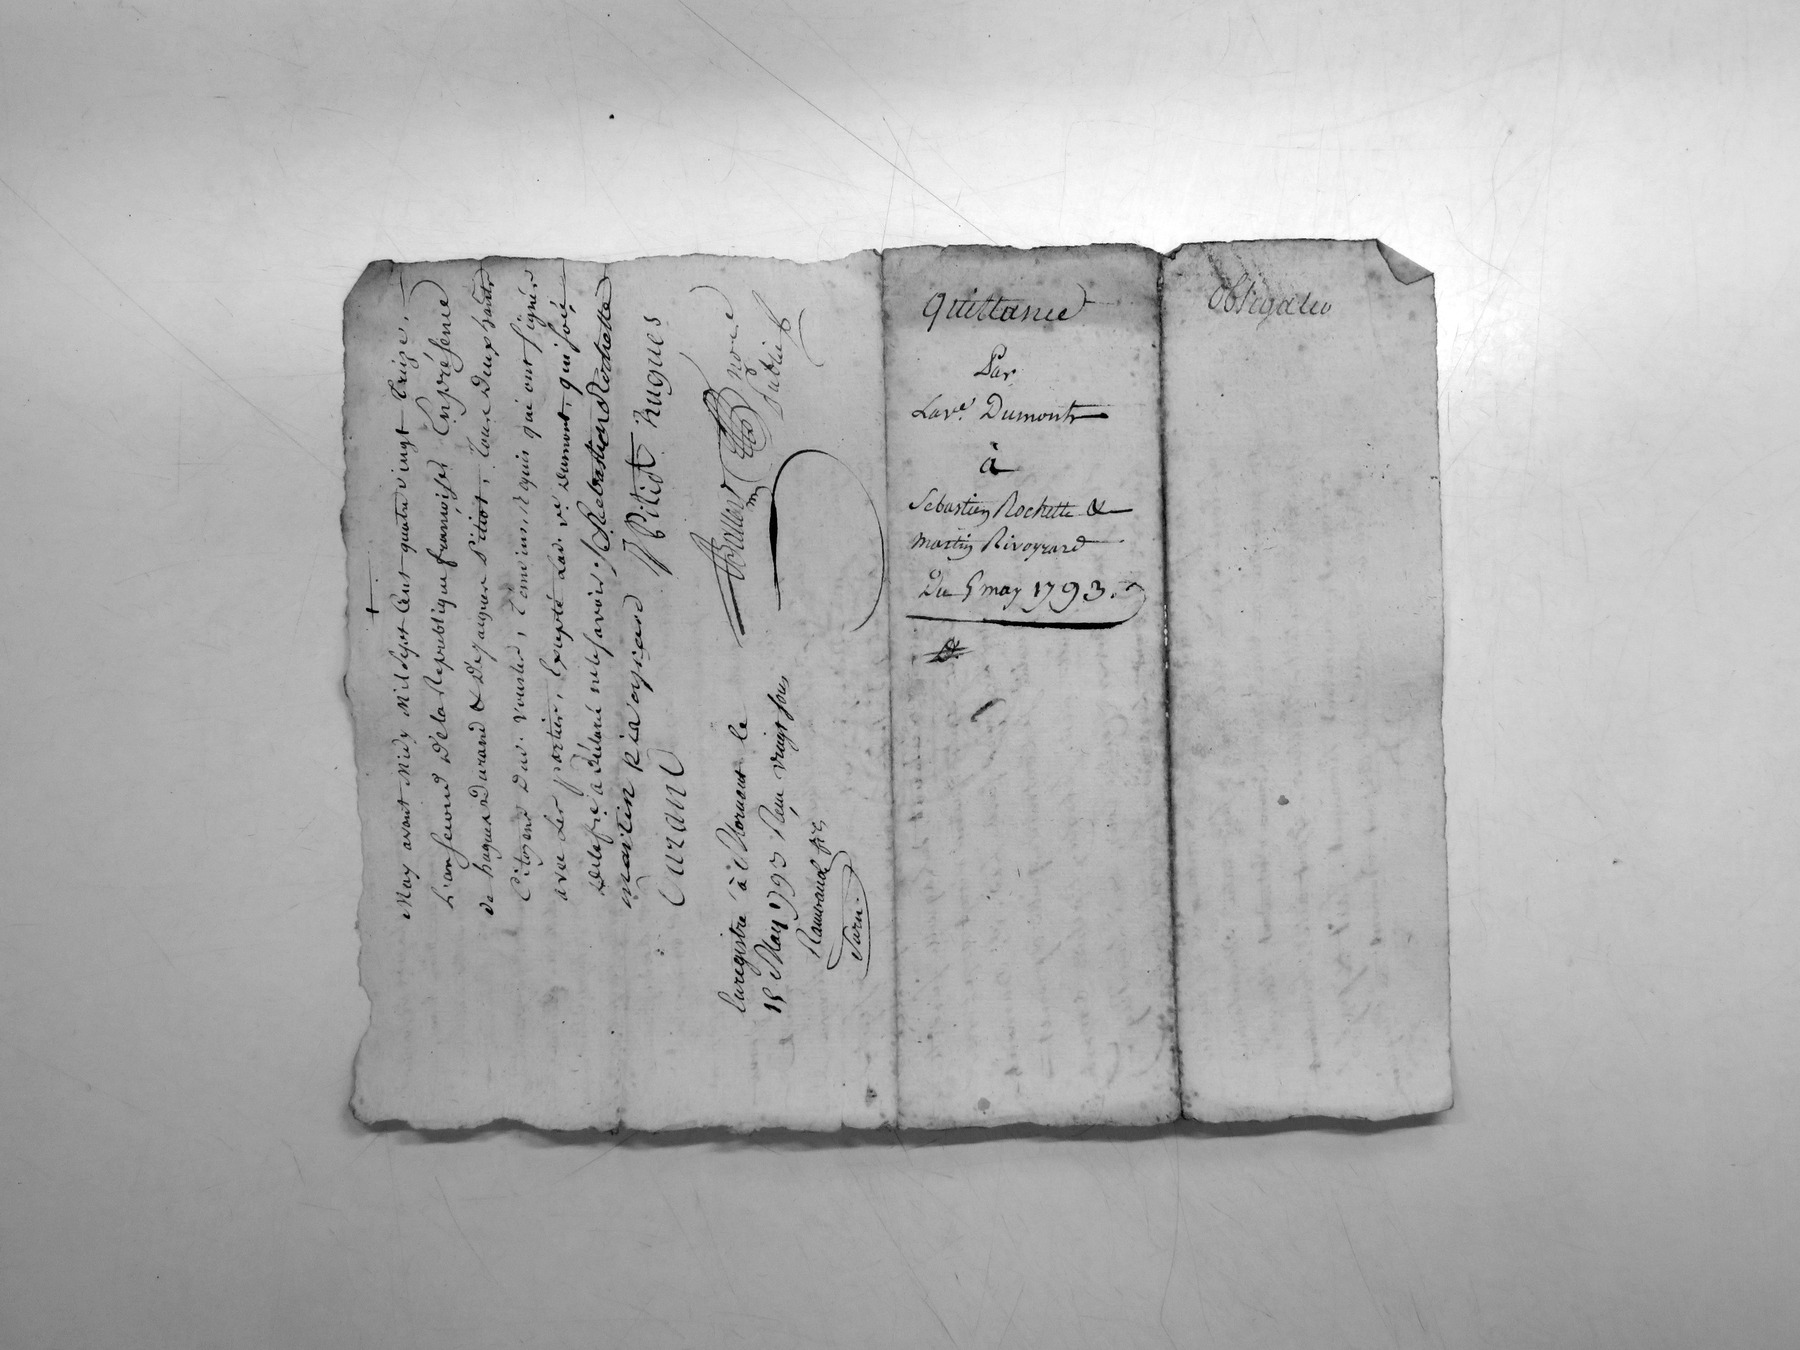 May avant Midy Mil Sept Cent quatre vingt treize,
L'an second De la Republique françoise En présence
de hugues Durand & De jacques Pitiot, tous Deux hants
Citoyens Dud. vourles, temoins, requis qui ont signés
avec Les parties, Excepté Lad. ve Dumont, qui foie
De le fre a Déclaré ne le savoir ./. Sebastien Rochette
martin Rivoyrard J Pitiot hugues
Durand
nore
public
Enregistré à St
15 May 1793 Reçu vingt sous
Quittance
Par
La ve. Dumont
à
Sebastien Rochette &
martin Rivoyrard
Du 5 may 1793.
Obligatio